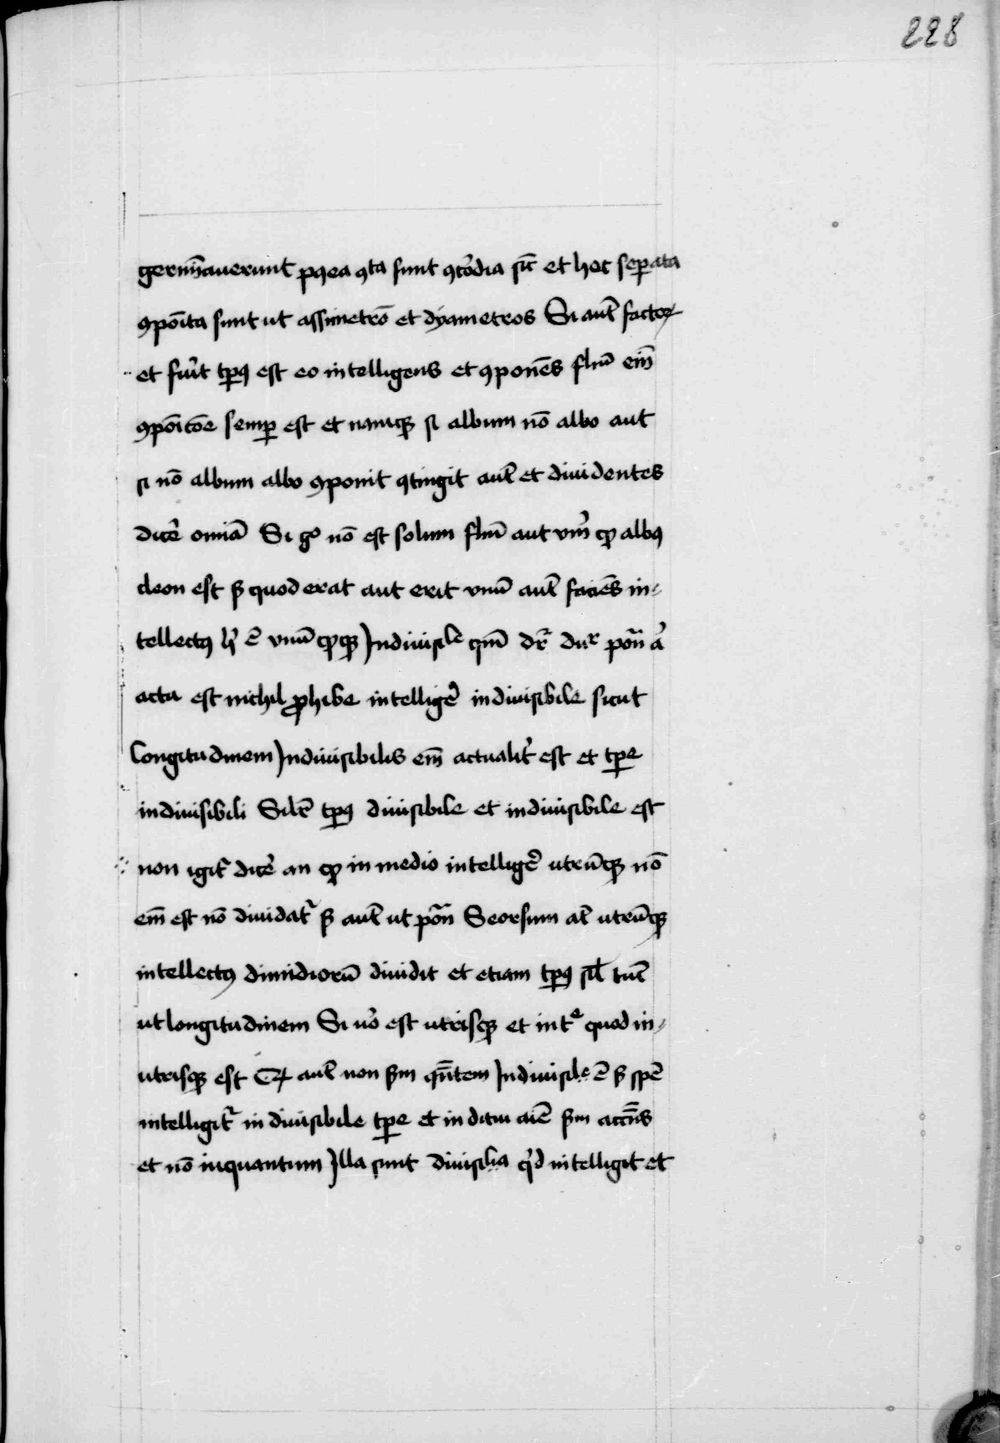 228
germīaverunt pꝯea ꝯta sunt ꝯcordia sic̄ et hec seperata
ꝯpoīta sunt ut assimetrō et dyametros Si aut̄ factoꝝ
et fuīt tp̄ꝯ est eo intelligens et ꝯponēs fl̄m em̄
ꝯpoīcōe semꝑ est et namꝙ si album nō albo aut
si nō album albo ꝯponit ꝯtingit aut̄ et dividentes
dicē omīa Si gͦ nō est solum fl̄m aut vm̄ ꝙ albꝯ
cleon est ẜ quod erat aut erit vnū aut̄ faciēs in-
tellectꝯ h̄ ē vnūꝙꝙ Indivisile qm̄ dr̄ dur pōn a
actu est nichil ꝓhibe intelligē indivisibile sicut
Longitudinem Indivisibilis em̄ actualit̄ est et tp̄e
indivisibili Silr̄ tp̄ꝯ divisibile et indivisibile est
non igit̄ dicē an ꝙ in medio intelligē utrūꝙ nō
em̄ est nō dividat̄ ẜ aut̄ ut pōn Seorsum at̄ utrūꝙ
intellectꝯ dimidiorū dividit et etiam tp̄ꝯ sil̄ tūc
ut longitudinem Si ūo est utrisꝙ et in tē quod in-
utrisꝙ est Qꝫ aut̄ non ẜm qn̄tem Indivisile ē ẜ spē
intelligit̄ indivisibile tp̄e et inditui aīe ẜm accn̄s
et nō inquantum Illa sunt divisilia qd̄ intelligit et